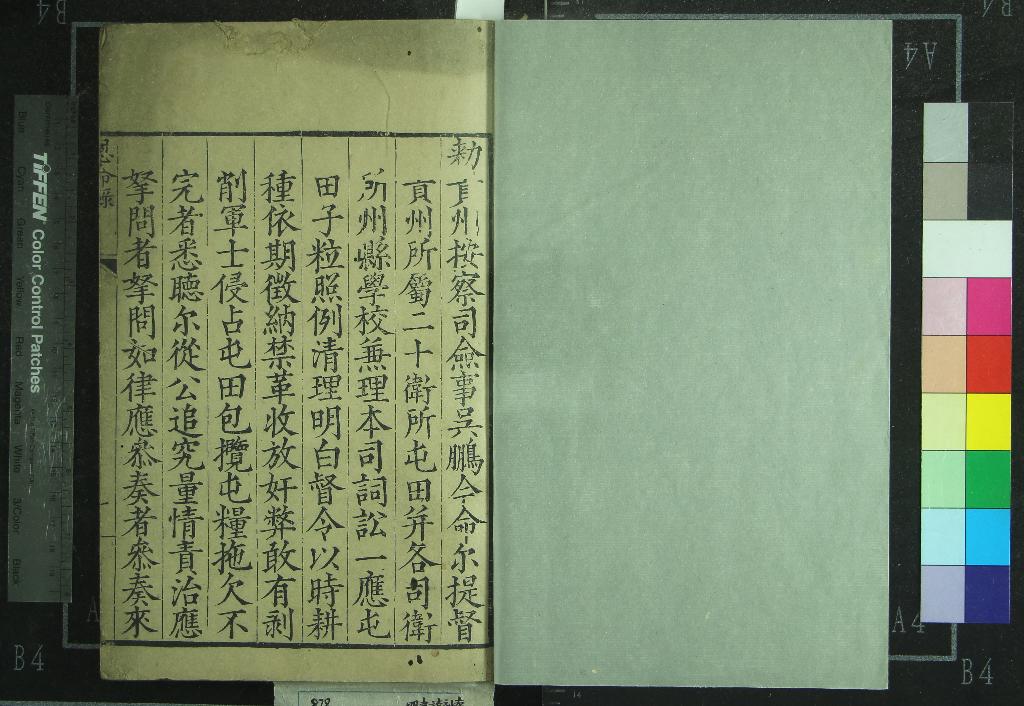 勑貢州按察司僉事吳鵬今命尔提督
貢州所屬二十衛所屯田幷各司衛
所州縣學校兼理本司詞訟一應屯
田子粒照例清理明白督令以時耕
種依期徵納禁革收放奸弊敢有剥
削軍士侵占屯田包攬屯糧拖欠不
完者悉聽尔從公追究量情責治應
拏問者拏問如律應叅奏者叅奏來
恩命錄
TIFFEN Color Control Patches
Blue
Cyan
Green
Yellow
Red
Magenta
White
3/Color
Black
A4
B4
A4
B4
879